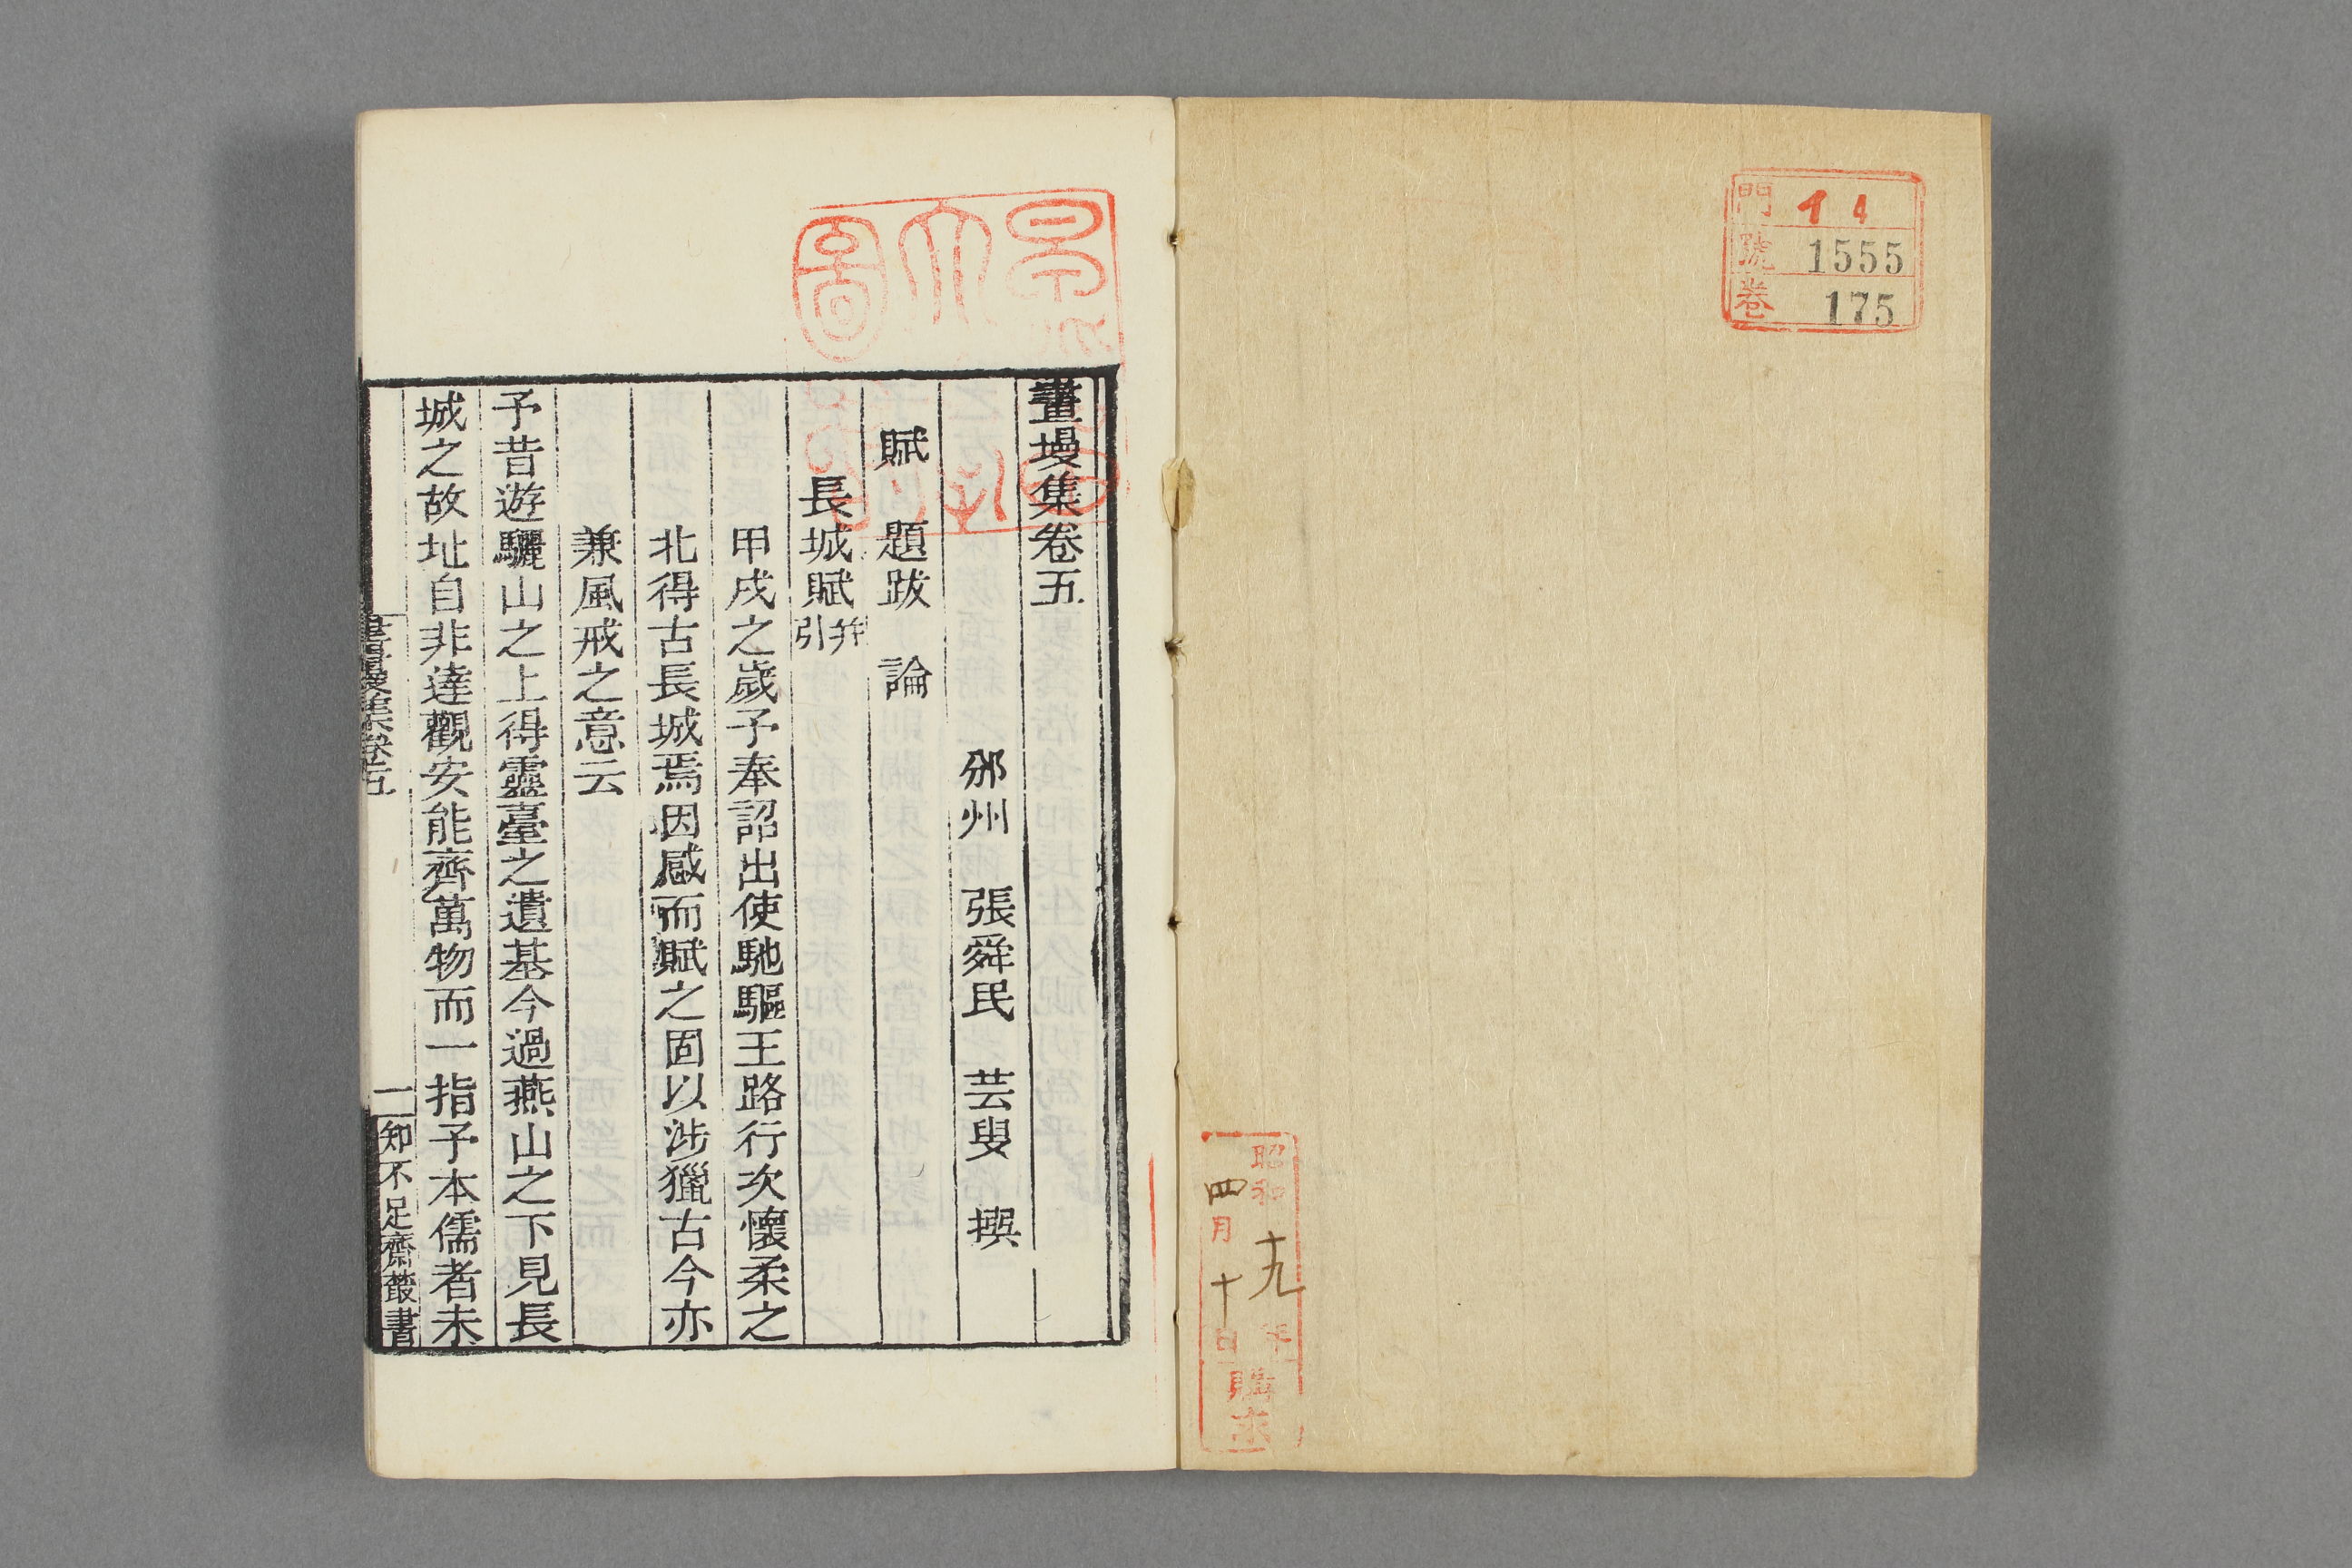 門 14
號 1555
卷 175
昭和十九年
四月十日
購求
畫墁集卷五
邠州 張舜民 芸叟 撰
賦 題跋 論
長城賦并引
甲戌之歲予奉詔出使馳驅王路行次懷柔之
北得古長城焉因感而賦之固以涉獵古今亦
兼風戒之意云
予昔遊驪山之上得靈臺之遺基今過燕山之下見長
城之故址自非達觀安能齊萬物而一指予本儒者未
畫墁集卷五
一
知不足齋叢書